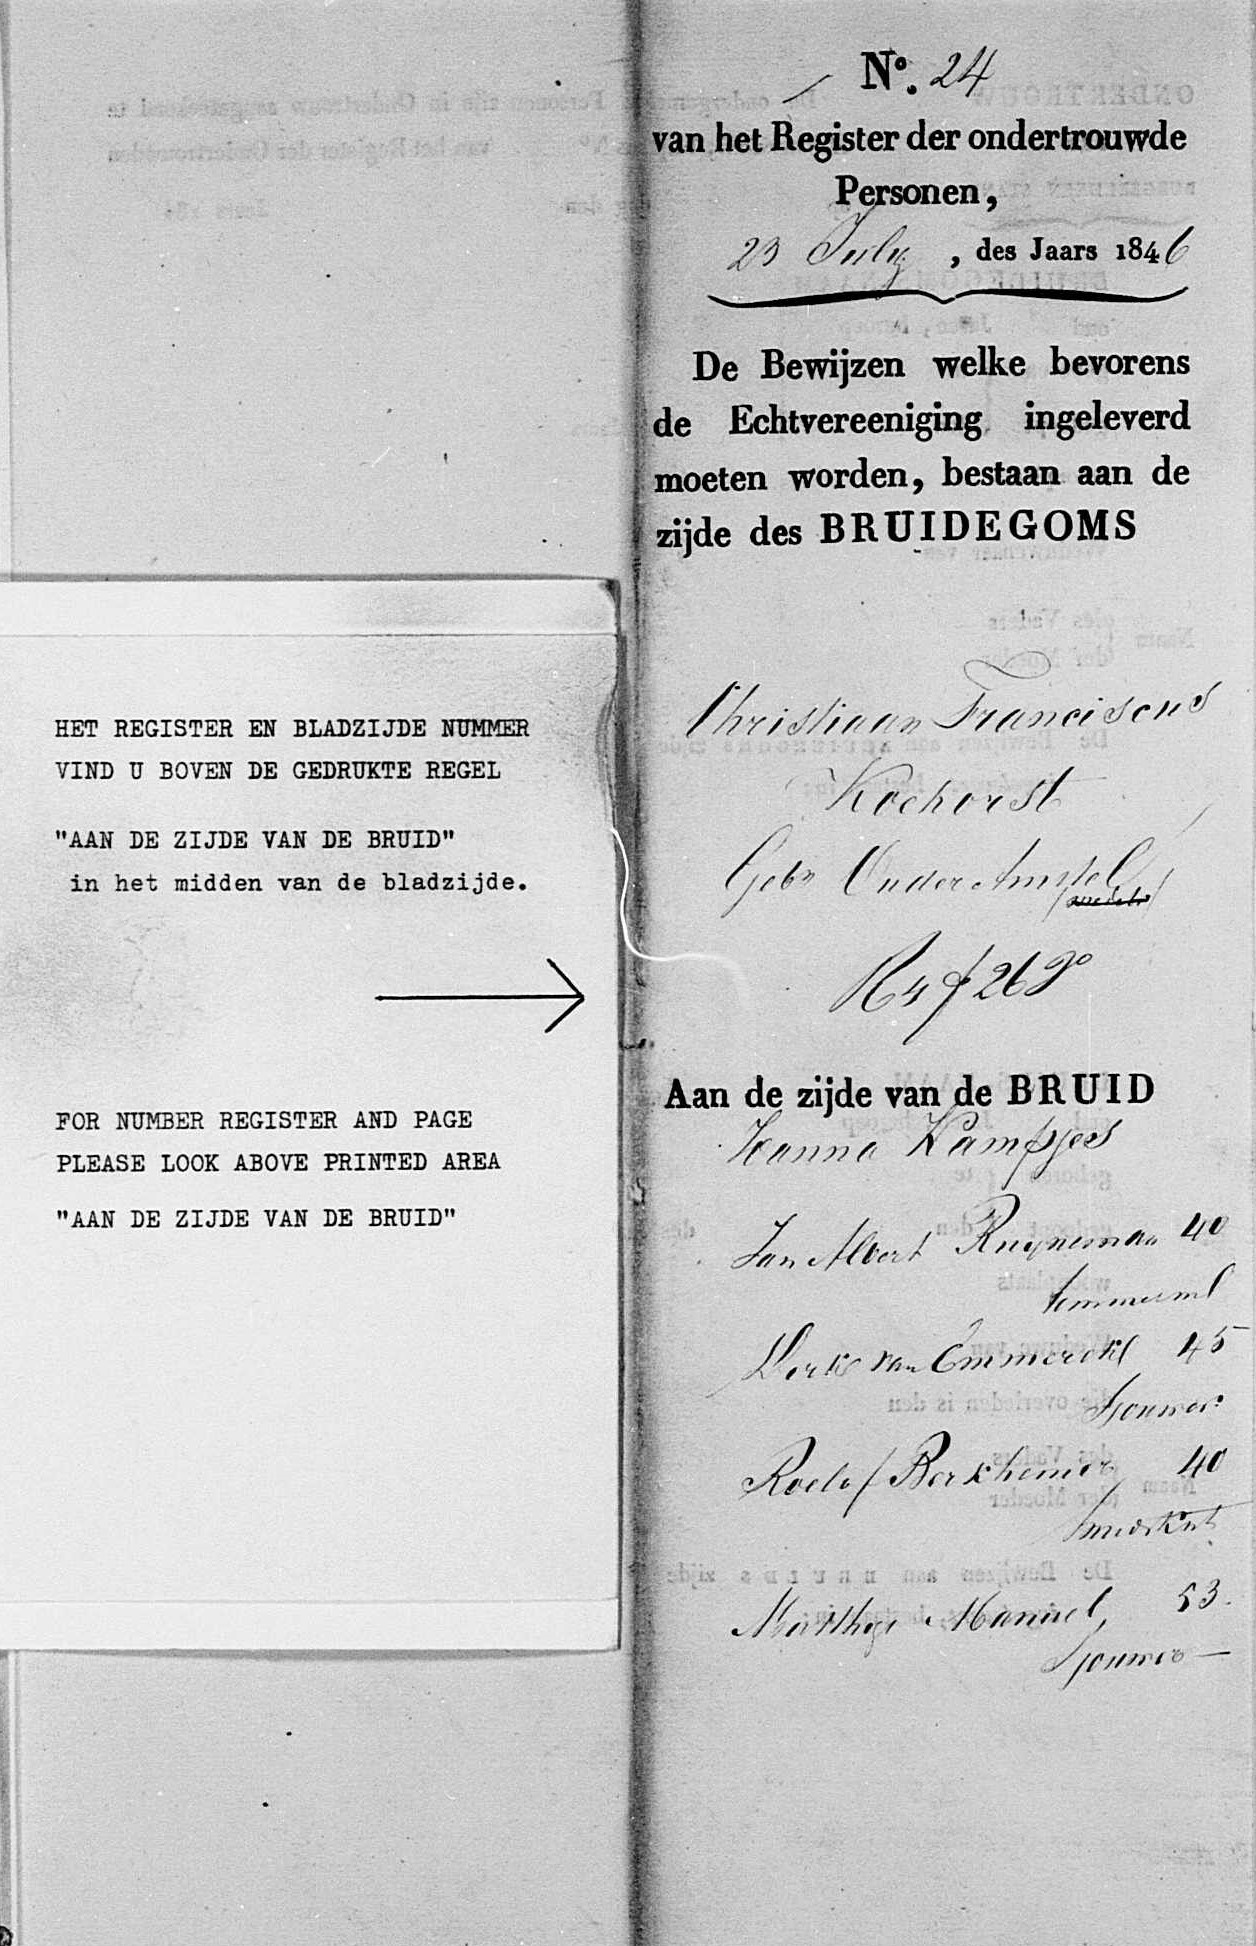 HET REGISTER EN BLADZIJDE NUMMER
VIND U BOVEN DE GEDRUKTE REGEL
"AAN DE ZIJDE VAN DE BRUID"
in het midden van de bladzijde.
FOR NUMBER REGISTER AND PAGE
PLEASE LOOK ABOVE PRINTED AREA
"AAN DE ZIJDE VAN DE BRUID"
No. 24
van het Register der ondertrouwde
Personen,
23 July, des Jaars 1846
De Bewijzen welke bevorens
de Echtvereeniging ingeleverd
moeten worden, bestaan aan de
zijde des BRUIDEGOMS
Christiaan Franciscus
Kochorst
Gebn Ouder Amstel
R 4 f 26
Aan de zijde van de BRUID
Hanna Kampjes
Jan Albert Ruyneman 40
Dirk van Emmerik 45
Sjouwer
Roelof Berkhemer 40
Matthys Manuel, 53.
Sjouwer